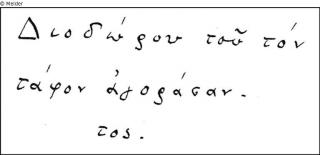 © Meider
Διοδώρου τοῦ τὸν
τάφον ἀγοράσαν-
τος.